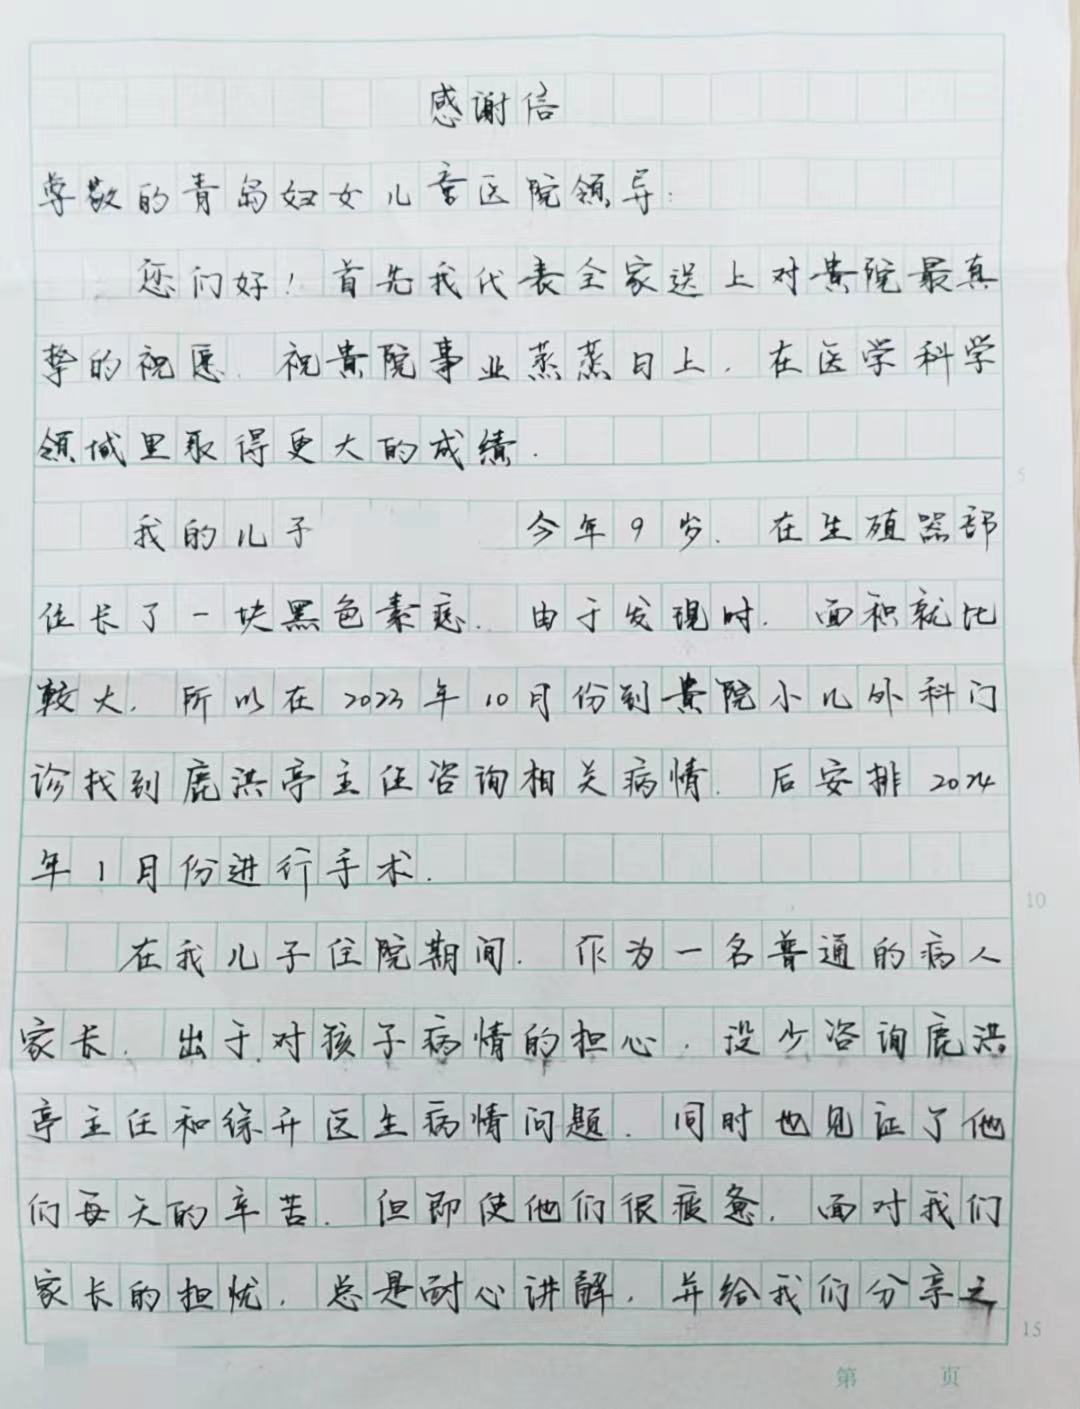 感谢信
尊敬的青岛妇女儿童医院领导:
您们好!首先我代表全家送上对贵院最真
挚的祝愿.祝贵院事业蒸蒸日上.在医学科学
领域里取得更大的成绩.
我的儿子 今年9岁.在生殖器部
位长了一块黑色素痣.由于发现时.面积就比
较大.所以在2023年10月份到贵院小儿外科门
诊找到鹿洪亭主任咨询相关病情.后安排2024
年1月份进行手术.
在我儿子住院期间.作为一名普通的病人
家长.出于对孩子病情的担心.没少咨询鹿洪
亭主任和徐升医生病情问题.同时也见证了他
们每天的辛苦.但即使他们很疲惫.面对我们
家长的担忧.总是耐心讲解.并给我们分享之
5
10
15
第 页